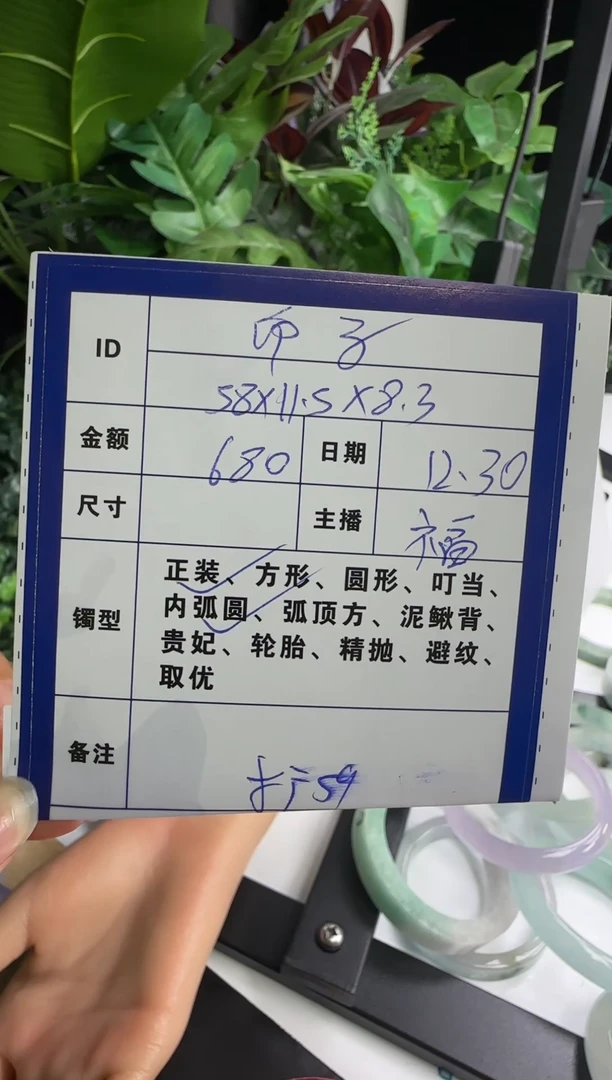 ID
58×11.5×8.3
金额 680 日期 12.30
尺寸 主播 福
镯型 正装、方形、圆形、叮当、
内弧圆、弧顶方、泥鳅背、
贵妃、轮胎、精抛、避纹、
取优
备注